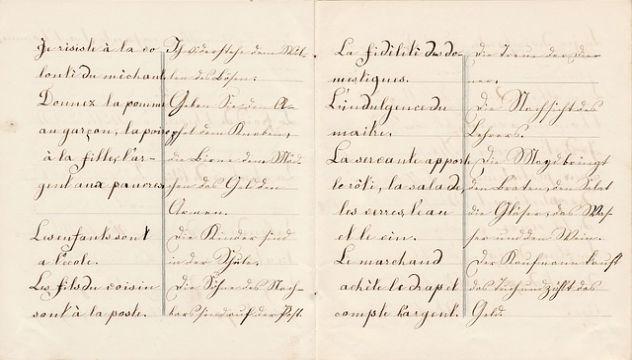 Je risiste à la vo
lonté du michant
Donnez la pomme
au garçon, la poire
à la fille, l'ar-
gent aux pauvres.
Les enfants sont
a l'ecole.
Les fils du voisin
sont à la poste.
Ich widerstehe dem Wil-
len des Bösen.
Geben Sie den A-
pfel dem Knaben,
die Birne dem Mäd-
chen das Geld den
Armen.
Die Kinder sind
in der Schule.
Die Söhne des Nach-
bars sind auf der Post.
La fidiliti des do-
mestiques.
L'indulgence du
maitre.
La servante apporte
le rôti, la salade,
les verres, l'eau
et le vin.
Le marchand
achète le drap et
compte l'argent.
Die Treue der Die-
ner.
Die Nachsicht des
Lehrers.
Die Magd bringt
den Braten, den Salat
die Gläser, das Was-
ser und den Wein.
Der Kaufmann kauft
das Tuch und zählt das
Geld.